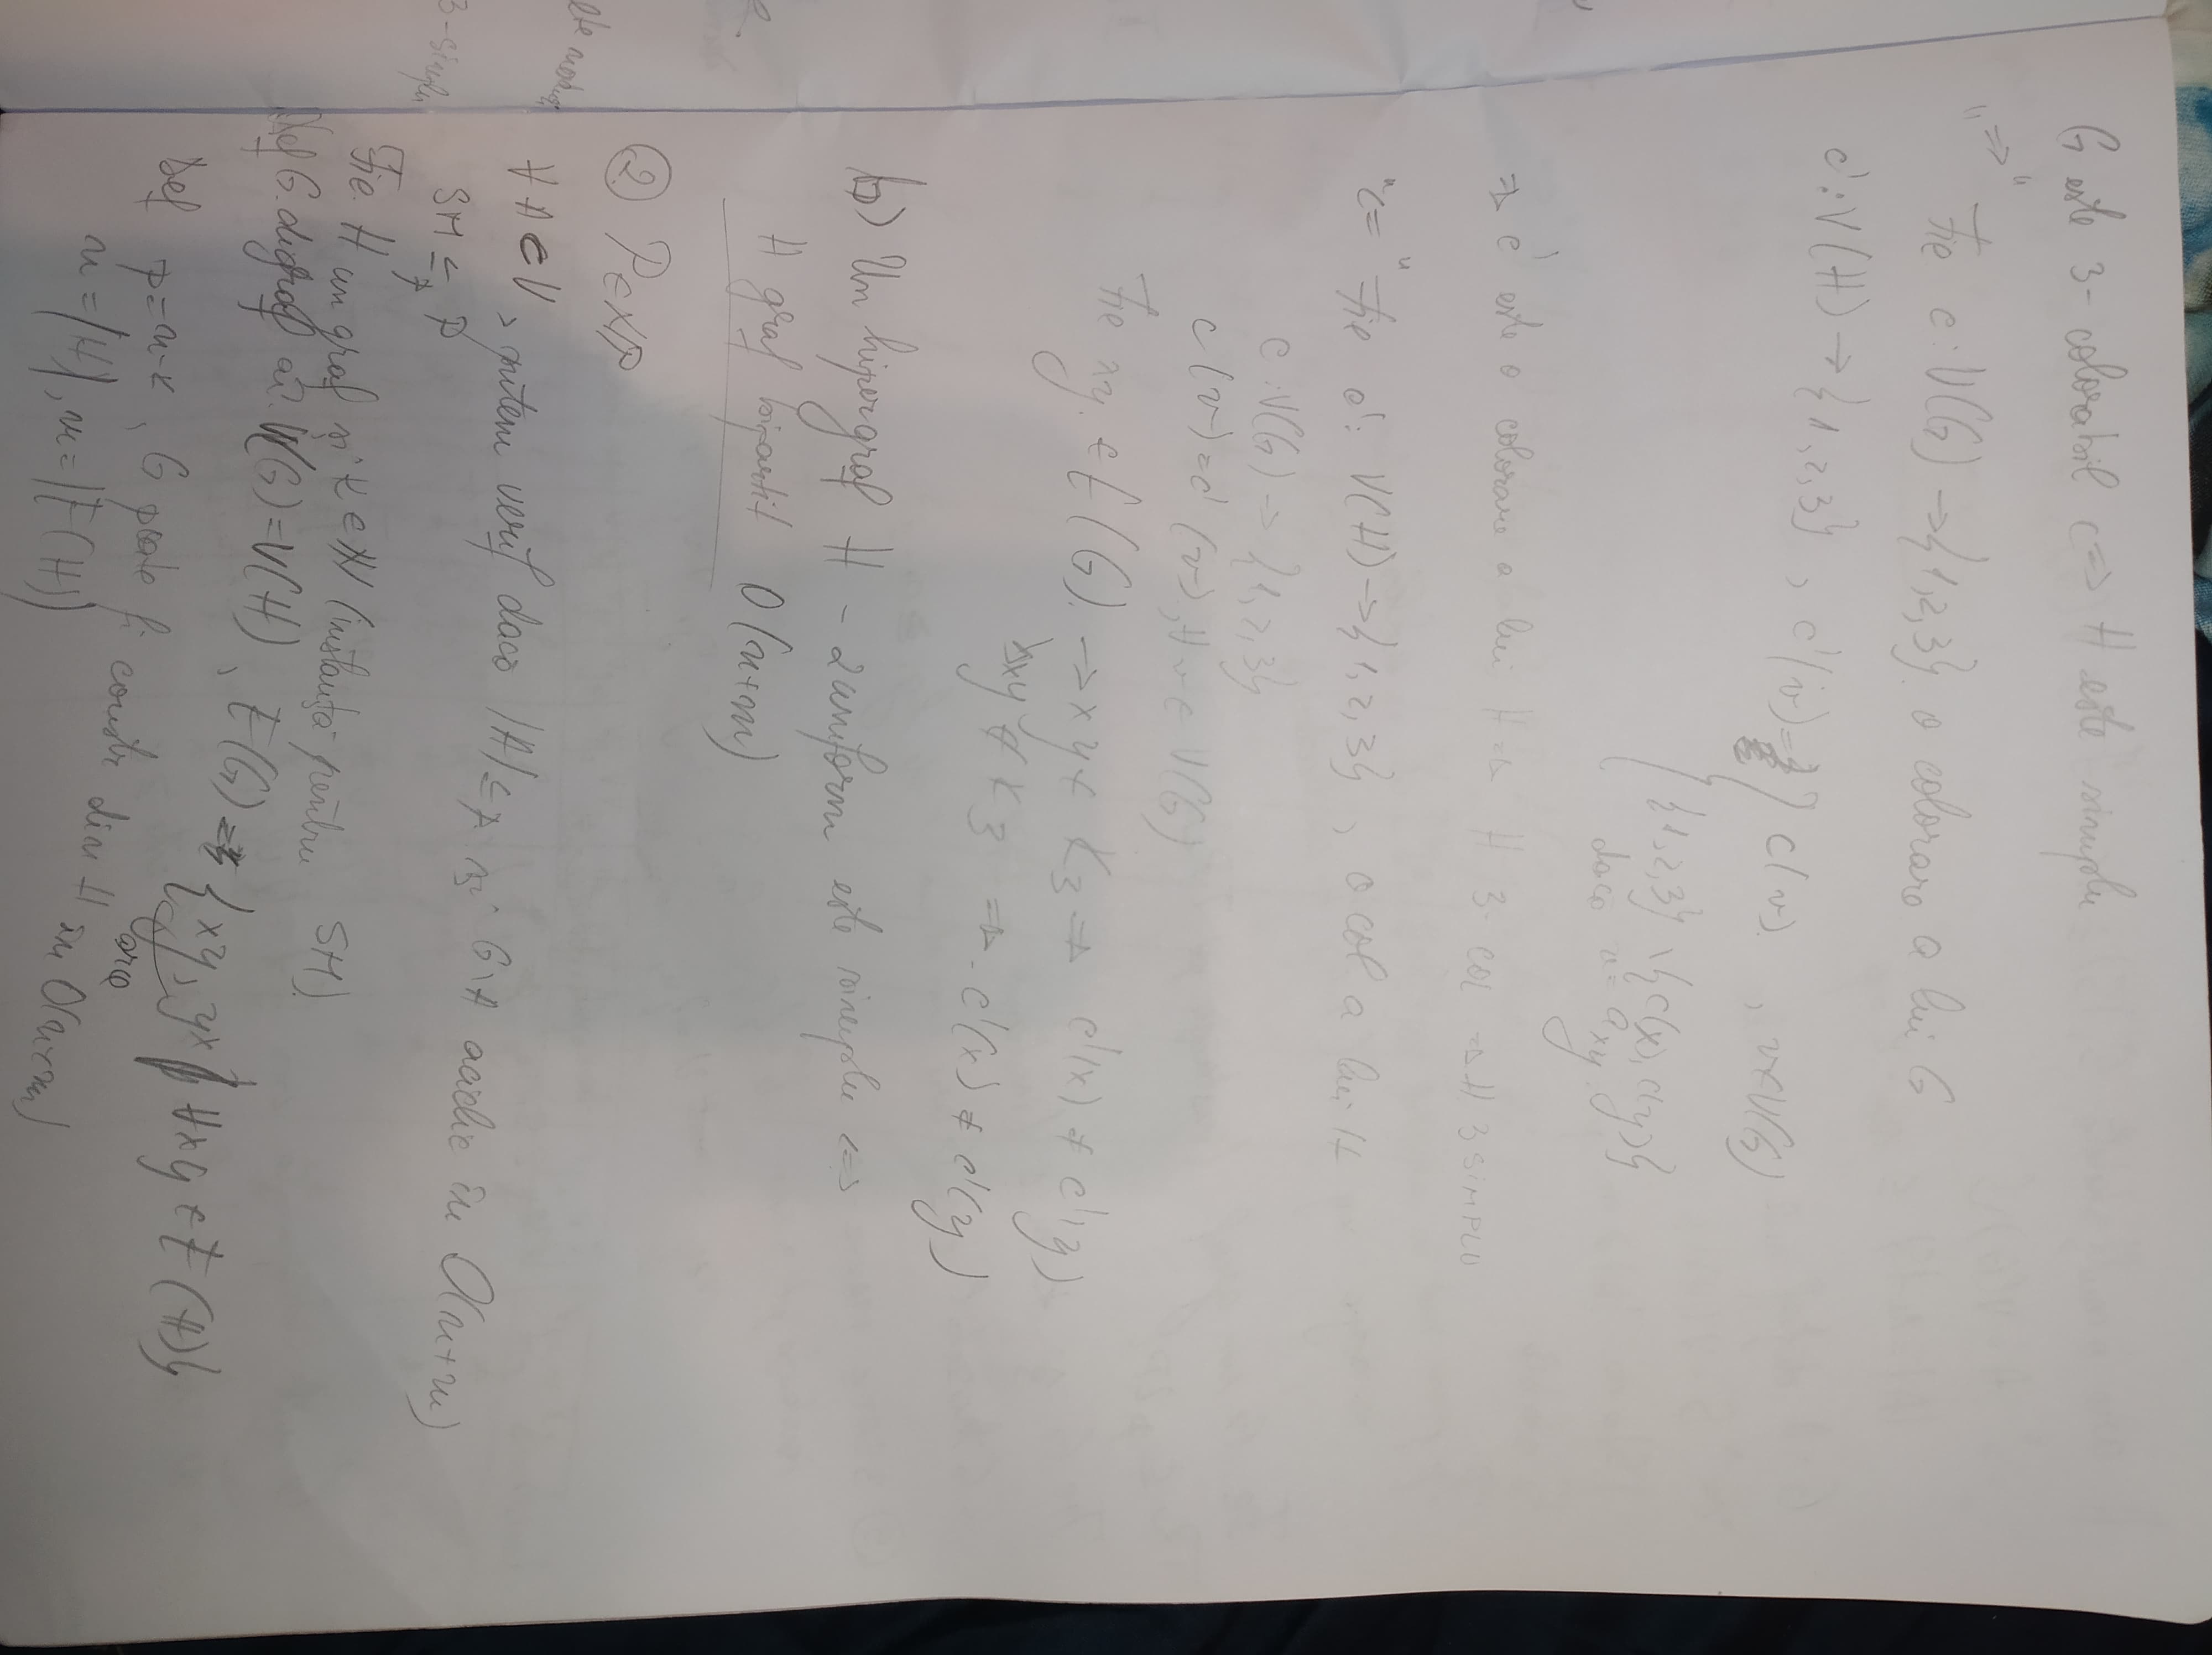 G este 3-colorabil <=> H este simplu
"=>"
Fie c: V(G) -> {1,2,3} o colorare a lui G
c': V(H) -> {1,2,3}, c'(v) = { c(v), v∈V(G)
{1,2,3} \ {c(x), c(y)}
daca v = a_xy
=> c' este o colorare a lui H => H 3-col => H 3 SIMPLU
"<=" Fie c': V(H) -> {1,2,3}, o col a lui H
c: V(G) -> {1,2,3}
c(v) = c'(v), ∀ v ∈ V(G)
Fie xy ∈ E(G) -> xy ∈ K3 => c'(x) ≠ c'(y)
xy ∉ K3 => c'(x) ≠ c'(y)
b) Un hipergraf H - 2uniform este simplu <=>
H graf bipartit O(n+m)
② P ∈ NP
∀ A ⊂ V, putem verif daca |A| ≤ p si G\A aciclic in O(n+m)
SM ≤p P
Fie H un graf si k ∈ N (instanta pentru SM)
Def G digraf ai. V(G) = V(H), E(G) = {xy, yx | ∀xy ∈ E(H)}
Def p = n-k, G poate fi constr din H in O(n+m)
n = |H|, m = |E(H)|
3-simplu